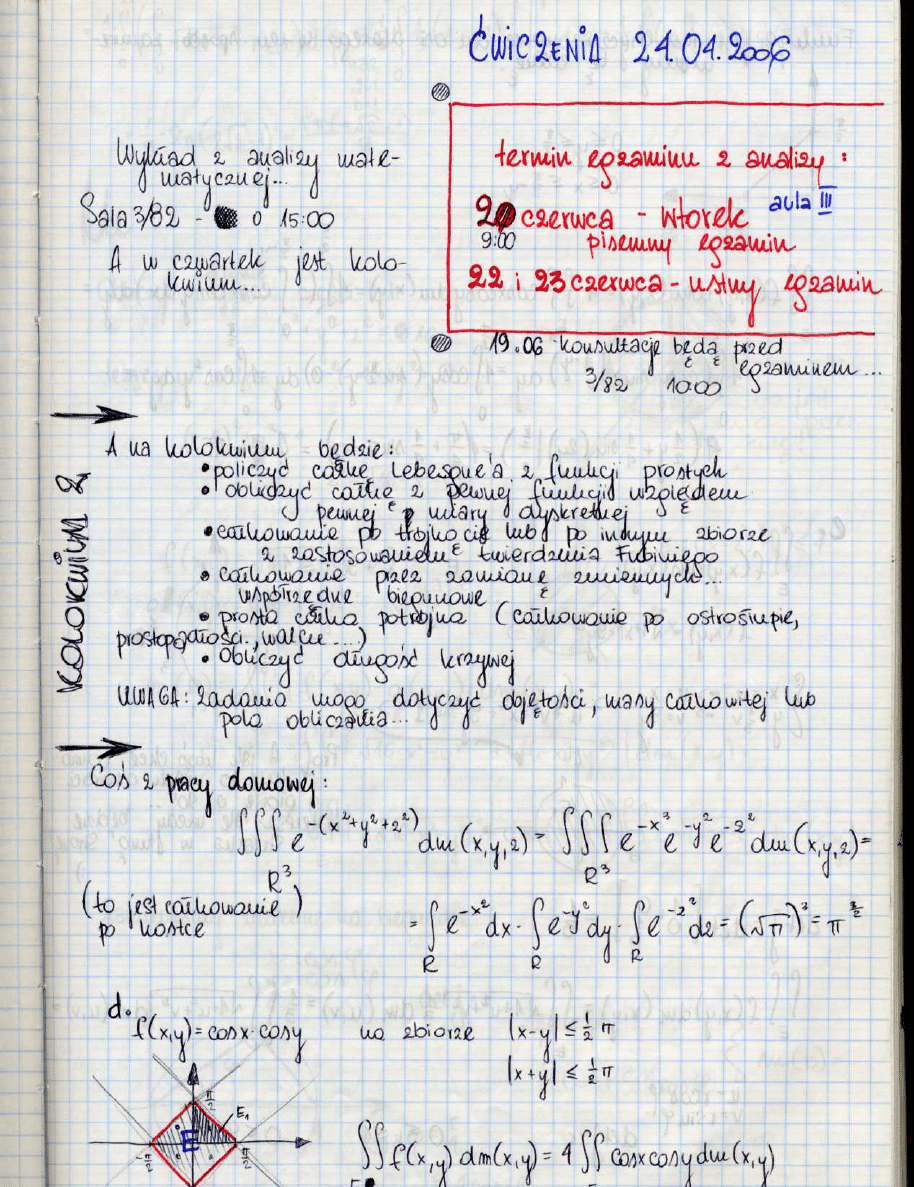 ĆWICZENIA 24.04.2006
Wykład z analizy mate-
matycznej...
Sala 3/82 - o 15:00
A w czwartek jest kolo-
kwium...
termin egzaminu z analizy:
20 czerwca - wtorek aula III
9:00 pisemny egzamin
22 i 23 czerwca - ustny egzamin
19.06 konsultacje będą przed
egzaminem...
3/82 10:00
KOLOKWIUM 2
A na kolokwium będzie:
• policzyć całkę Lebesgue'a z funkcji prostych
• obliczyć całkę z pewnej funkcji względem
pewnej miary dyskretnej
• całkowanie po trójkącie lub po innym zbiorze
z zastosowaniem twierdzenia Fubiniego
• całkowanie przez zamianę zmiennych...
współrzędne biegunowe
• prosta całka potrójna (całkowanie po ostrosłupie,
prostopadłości., walcu...)
• Obliczyć długość krzywej
UWAGA: Zadania mogą dotyczyć objętości, masy całkowitej lub
pola obliczania...
Coś z pracy domowej:
∭ e^{-(x²+y²+z²)} dm(x,y,z) = ∭ e^{-x²} e^{-y²} e^{-z²} dm(x,y,z) =
R³ R³
(to jest całkowanie)
po kostce
= ∫ e^{-x²} dx · ∫ e^{-y²} dy · ∫ e^{-z²} dz = (√π)³ = π^{3/2}
R R R
d.
f(x,y) = cosx·cosy na zbiorze |x-y| ≤ ½ π
|x+y| ≤ ½ π
π/2
E₁
E
-π/2 π/2
∬ f(x,y) dm(x,y) = 4 ∬ cosxcosy dm(x,y)